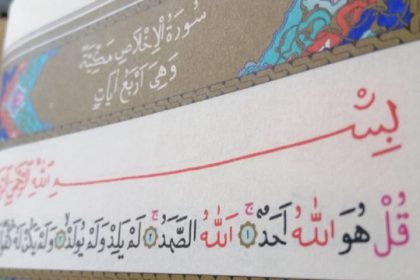 سُورَةُ الْإِخْلَاصِ مَكِّيَّةٌ
وَهِيَ أَرْبَعُ آيَاتٍ
بِسْمِ اللهِ الرَّحْمٰنِ
قُلْ هُوَ اللهُ أَحَدٌ ۝١ اَللهُ الصَّمَدُ ۝٢ لَمْ يَلِدْ وَلَمْ يُولَدْ ۝٣ وَلَمْ يَكُنْ لَهُ